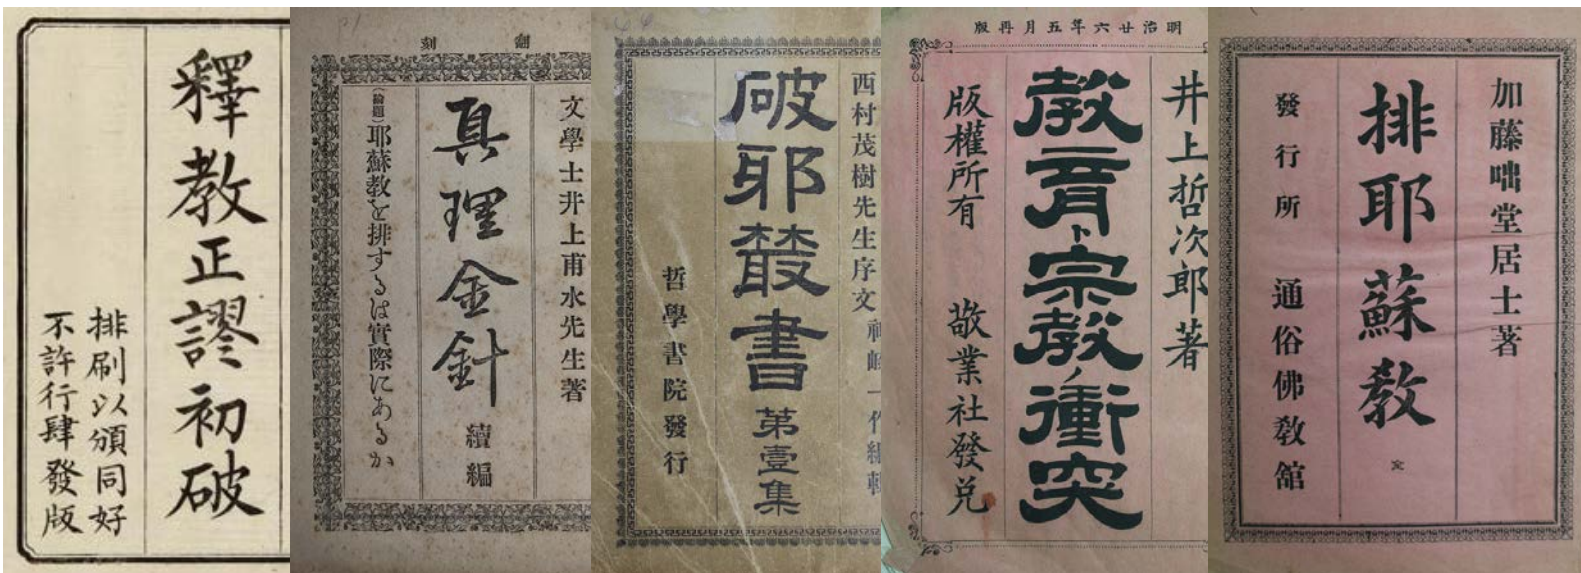 釋教正謬初破
排刷以頒同好
不許行肆發版
翻刻
文學士井上甫水先生著
真理金針 續編
(論題)耶蘇教を排するは實際にあるか
西村茂樹先生序文
破邪叢書 第壹集
哲學書院發行
明治廿六年五月再版
井上哲次郎著
教育ト宗教ノ衝突
版權所有 敬業社發兌
加藤咄堂居士著
排耶蘇教 完
發行所 通俗佛教館